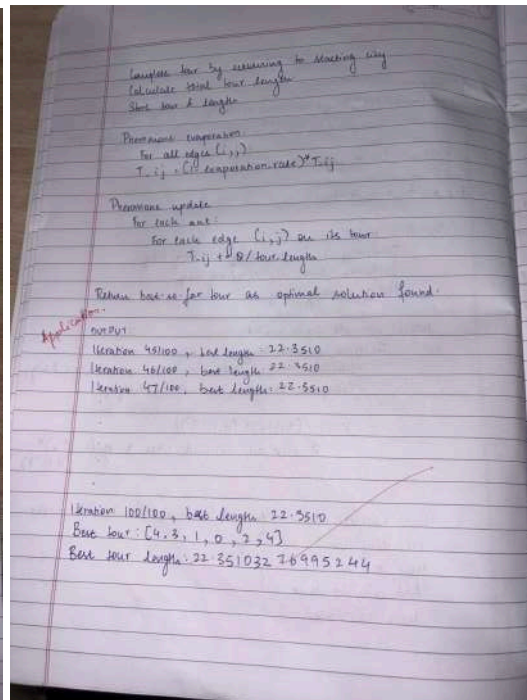 Complete tour by returning to starting city
Calculate total tour length
Store tour & length
Pheromone evaporation:
For all edges (i,j)
T_ij = (1 - evaporation_rate) * T_ij
Pheromone update
For each ant:
For each edge (i,j) on its tour
T_ij += Q/tour_length
Return best-so-far tour as optimal solution found.
Application.
OUTPUT
Iteration 45/100, best length: 22.3510
Iteration 46/100, best length: 22.3510
Iteration 47/100, best length: 22.3510
.
.
.
Iteration 100/100, best length: 22.3510
Best tour: [4, 3, 1, 0, 2, 4]
Best tour length: 22.35103226995244